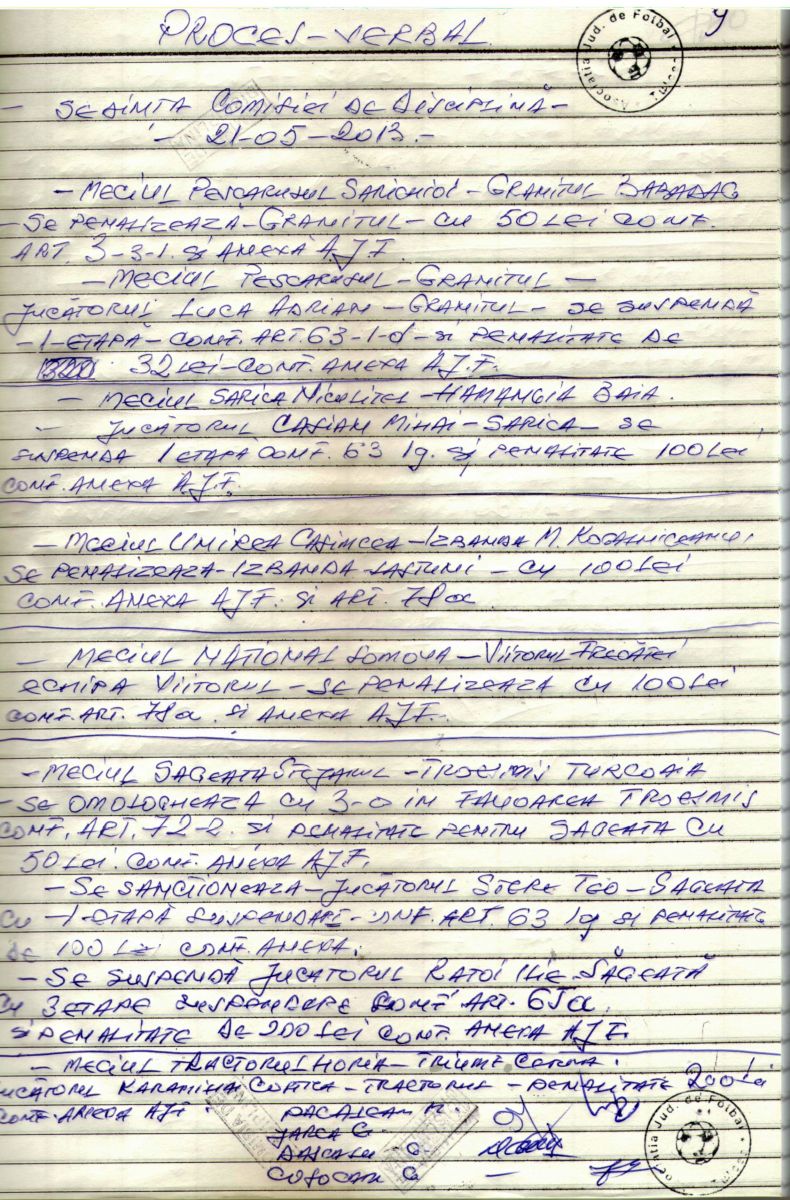 PROCES-VERBAL
Asociatia Jud. de Fotbal
- SEDINTA COMISIEI DE DISCIPLINĂ -
- 21-05-2013.-
- MECIUL PESCARUSUL SARICHIOI - GRANITUL BABADAG
- SE PENALIZEAZĂ - GRANITUL - CU 50 LEI CONF.
ART. 3-3-1. si ANEXĂ AJF.
- MECIUL PESCARUSUL - GRANITUL -
JUCĂTORUL LUCA ADRIAN - GRANITUL - SE SUSPENDĂ
- 1-ETAPĂ - CONF. ART. 63-1-d - si PENALITATE DE
32 LEI - CONF. ANEXA A.J.F.
- MECIUL SARICA NICULITEL - HAMANGIA BAIA.
- JUCĂTORUL CASIAN MIHAI - SARICA - SE
SUSPENDA 1 ETAPĂ CONF. 63 1g. si PENALITATE 100 LEI
CONF. ANEXA A.J.F.
- MECIUL UNIREA CASIMCEA - IZBANDA M. KOGALNICEANU.
SE PENALIZEAZA - IZBANDA - CU 100 LEI
CONF. ANEXA AJF. si ART. 78a
- MECIUL NATIONAL SOMOVA - VIITORUL FRECĂTEI
ECHIPA VIITORUL - SE PENALIZEAZA CU 100 LEI
CONF. ART. 78a. si ANEXA AJF.
- MECIUL SAGEATA STEJARUL - TROESMIS TURCOAIA
- SE OMOLOGHEAZĂ CU 3-0 IN FAVOAREA TROESMIS
CONF. ART. 72-2. si PENALITATE PENTRU SAGEATA CU
50 LEI. CONF. ANEXA AJF.
- SE SANCTIONEAZA - JUCĂTORUL STERE TEO - SAGEATA
CU - 1-ETAPĂ SUSPENDARE - CONF. ART. 63 1g si PENALITATE
DE 100 LEI CONF. ANEXA.
- SE SUSPENDĂ JUCATORUL RATOI ILIE - SĂGEATĂ
CU 3 ETAPE SUSPENDARE CONF ART. 65a.
si PENALITATE DE 200 LEI CONF. ANEXA AJF.
- MECIUL TRACTORUL HORIA - TRIUMF CERNA.
JUCĂTORUL KARAMIHAI COSTICA - TRACTORUL - PENALITATE 200 LEI
CONF. ANEXA AJF.
JARCA G.
DASCALU C.
COJOCARU G
Asociatia Jud. de Fotbal